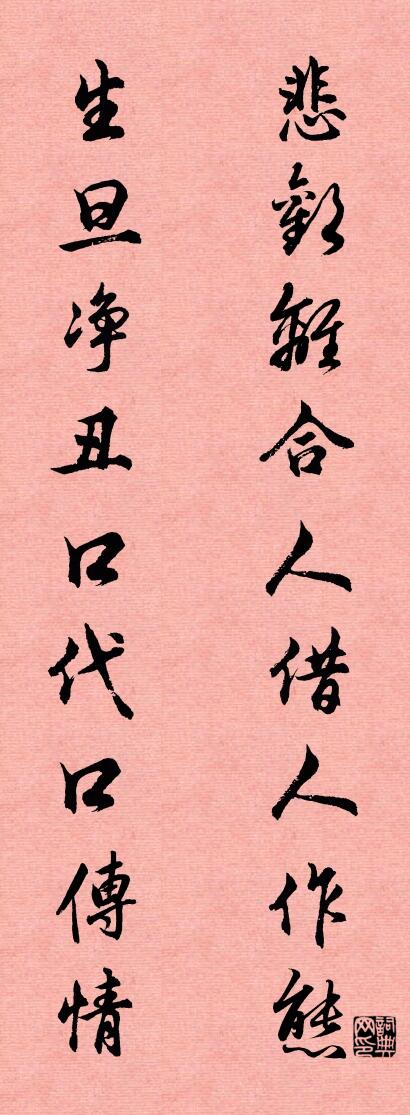 悲歡離合人借人作態
生旦净丑口代口傳情
詞典
网印